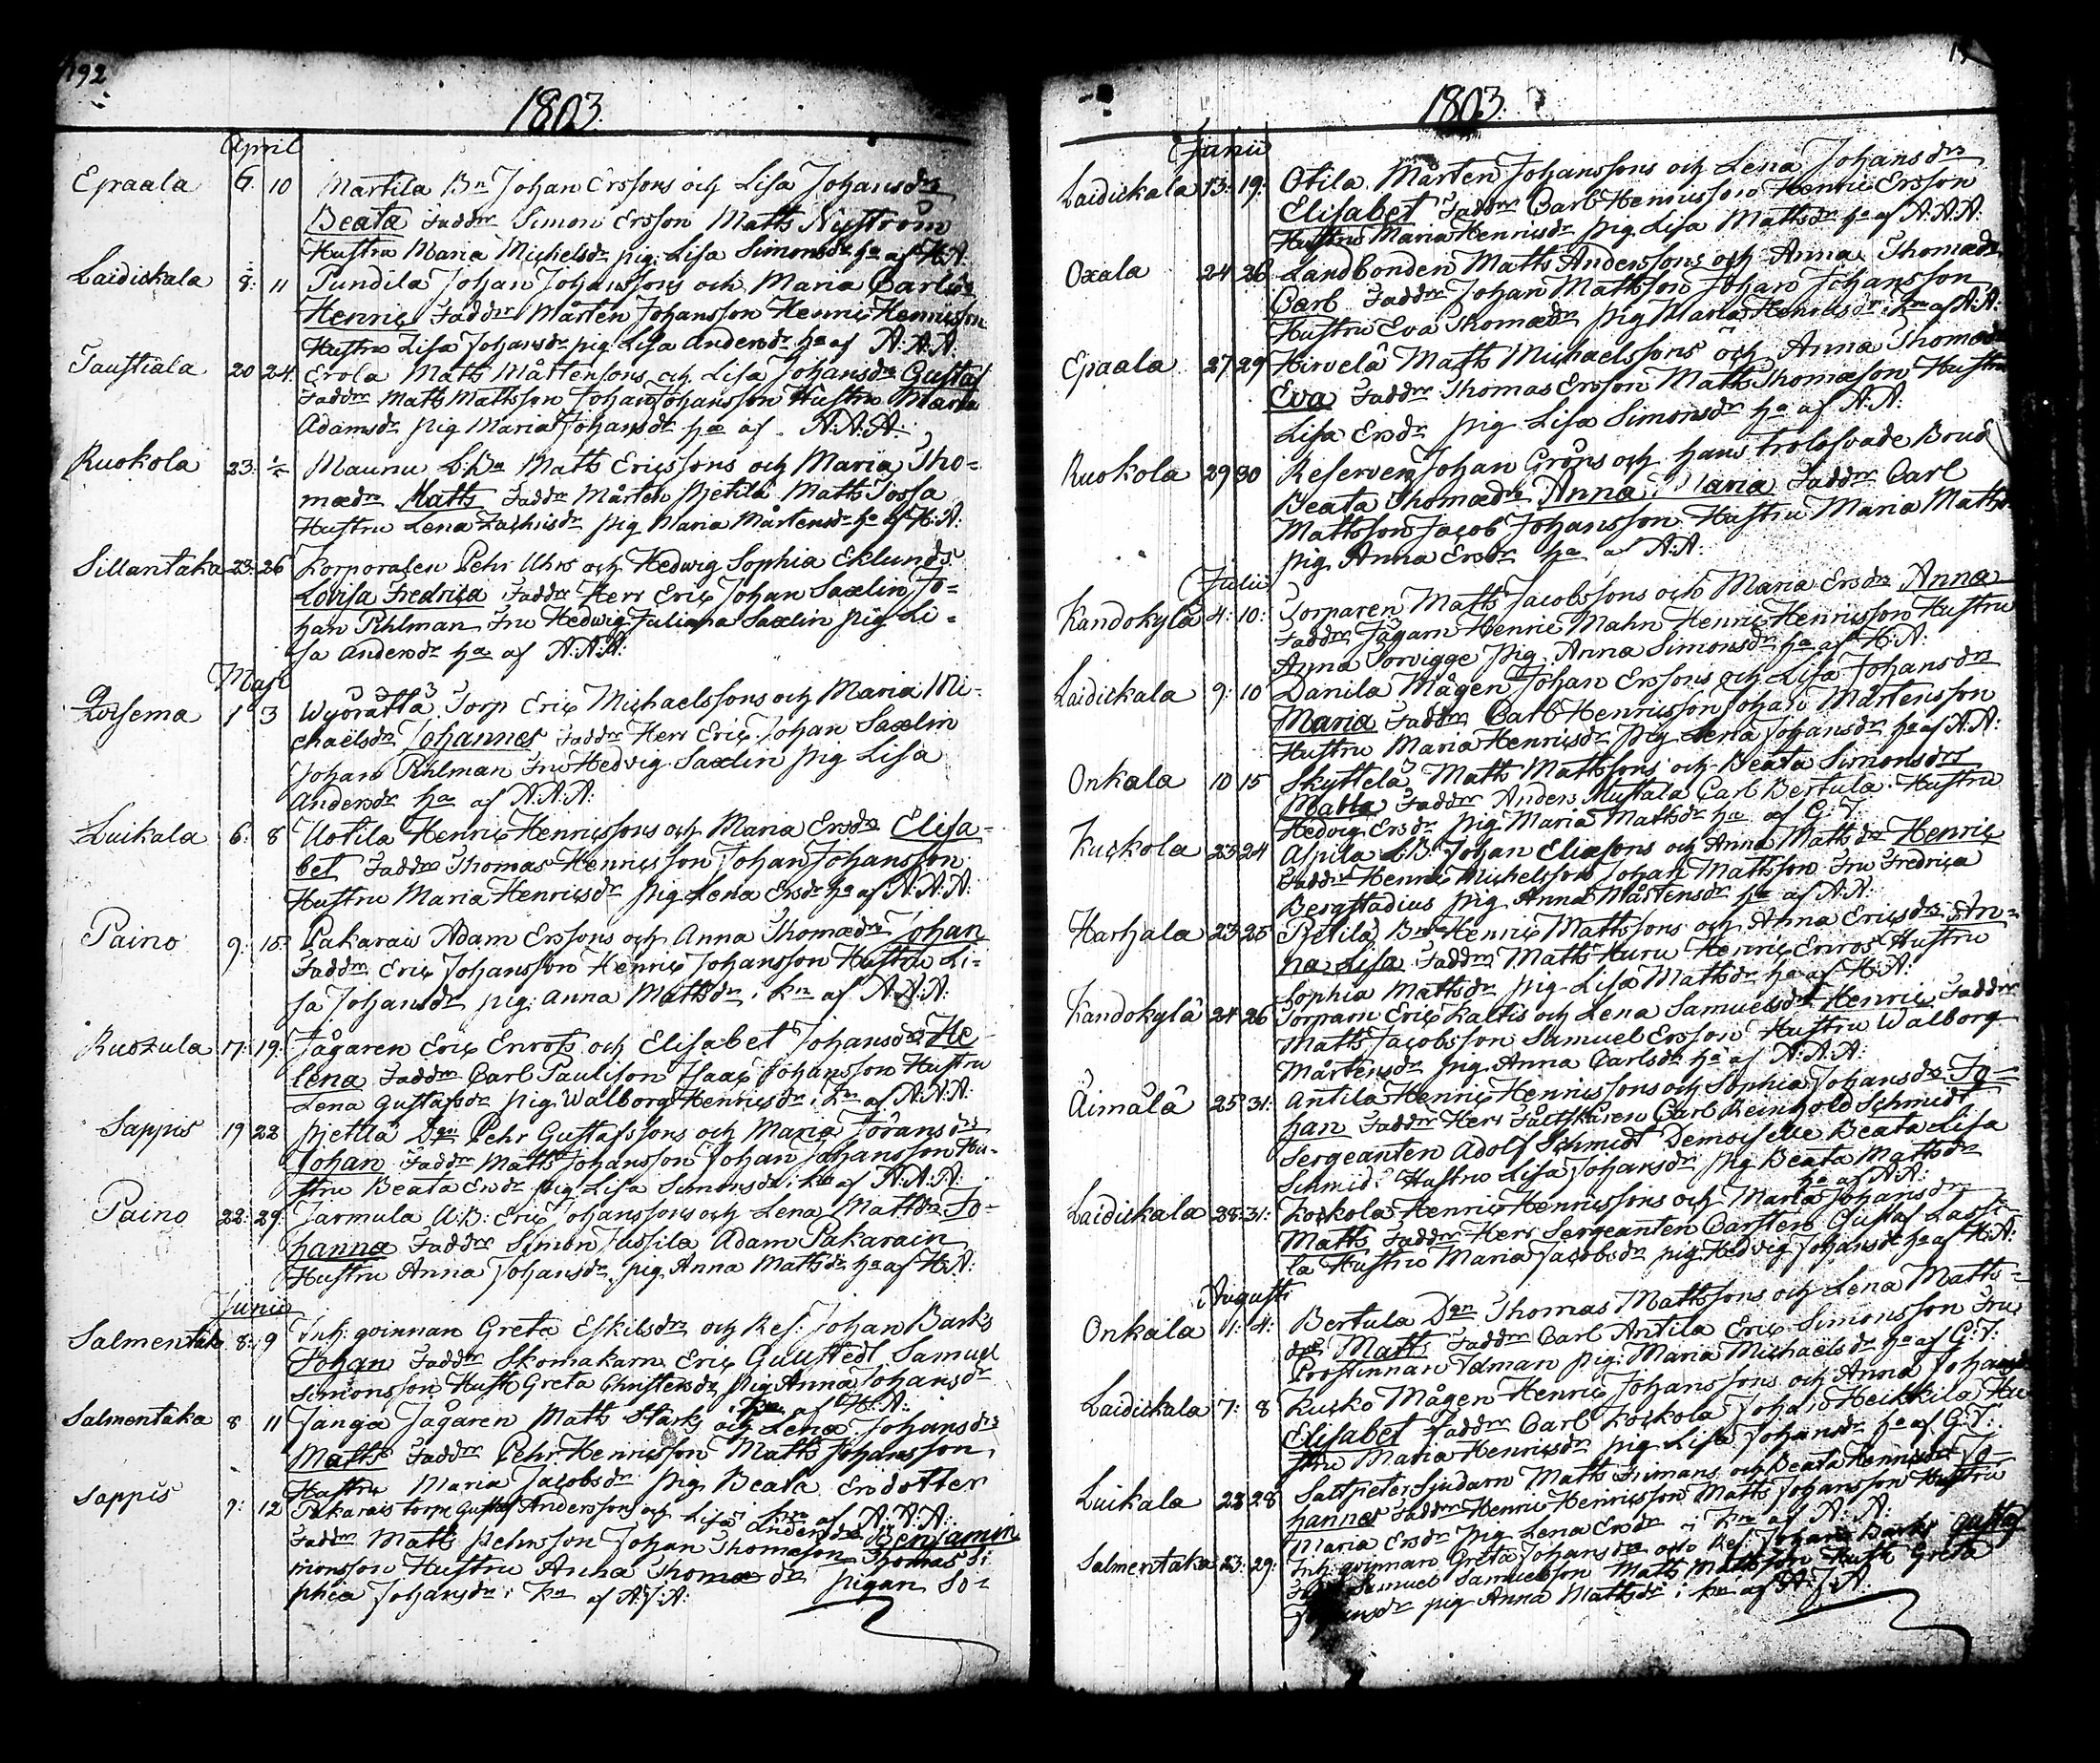 192
1803.
April
Epaala 6. 10 Martila Bn Johan Erssons och Lisa Johansdrs
Beata Faddrr Simon Ersson Matts Nyström
Hustru Maria Michelsdr pig. Lisa Simonsdr ha af H:A:
Laidickala 8: 11 Pundila Johan Johanssons och Maria Carlsdrs
Henric Faddrr Mårten Johansson Henric Henricsson
Hustru Lisa Johansdr pig Lisa Andersdr ha af A:A:A:
Taustiala 20 24. Erola Matts Mårtensons och Lisa Johansdrs Gustaf
Faddrr Matts Mattsson Johan Johansson Hustru Maria
Adamsdr pig Maria Johansdr ha af A:A:A:
Ruokola 23. Maunu L:Bn Matts Ericssons och Maria Tho-
mædrs Matts Faddrr Mårten Pjetilä Matts Tossa
Hustru Lena Zachrisdr pig Maria Mårtensdr ha af H:A:
Sillantaka 23. 26 Korporalen Pehr Uhrs och Hedwig Sophia Eklunds
Lovisa Fredrica Faddrr Herr Eric Johan Saxlin Jo-
han Pihlman Fru Hedwig Juliana Saxlin pig Li-
sa Andersdr ha af A:A:A:
Maji
1 3 Torp Eric Michaelssons och Maria Mi-
chaelsdrs Johannes Faddrr Herr Eric Johan Saxlin
Johan Pihlman Fru Hedvig Saxlin pig Lisa
Andersdr ha af A:A:A:
Luikala 6: 8 Uotila Henric Henricssons och Maria Ersdrs Elisa-
bet Faddrr Thomas Henricsson Johan Johansson
Hustru Maria Henricsdr pig Lena Ersdr ha af A:A:A:
Paino 9: 15: Pakarais Adam Erssons och Anna Thomædrs Johan
Faddrr Eric Johansson Henric Johansson Hustru Li-
sa Johansdr pig: Anna Mattsdr i kn af A:A:A:
Ruokula 17: 19. Jägaren Eric Enrots och Elisabet Johansdrs He
lena Faddrr Carl Paulison Isaac Johansson Hustru
Lena Gustafsdr pig Walborg Henricsdr i kn af A:A:A:
Sappis 19 22 Pjetilä Dgn Pehr Gustafssons och Maria Göransdrs
Johan Faddrr Matts Johansson Johan Johansson Hu-
stru Beata Ersdr pig Lisa Simonsdr i kn af A:A:A:
Paino 22: 29: Jarmula A:B: Eric Johanssons och Lena Mattsdrs Jo-
hanna Faddrr Simon Jussila Adam Pakarain
Hustru Anna Johansdr pig Anna Mattsdr ha af H:A:
Junii
Salmentaka 8: 9 Inh: qvinnan Greta Eskilsdrs och Res: Johan Barks
Johan Faddrr Skomakarn Eric Gullstedt Samuel
Simonsson Hust Greta Christersdr pig Anna Johansdr
i kn af H:A:
Salmentaka 8 11 Janga Jägaren Matts Starks och Lena Johansdrs
Matts Faddrr Pehr Henricsson Matts Johansson,
Hustru Maria Jacobsdr pig Beata Ersdotter
i kn af A:A:A:
Sappis 9: 12 Pakarais torp: Gustaf Anderssons och Lisa Andersdrs Benjamin
Faddrr Matts Pehrsson Johan Thomæson Thomas Si
monsson Hustru Anna Thomædr pigan So-
phia Johansdr i kn af A:J:A:
1803.
Junii
Laidickala 13: 19: Otila Mårten Johanssons och Lena Johansdrs
Elisabet Faddrr Carl Henricsson Henric Ersson
Hustru Maria Henricsdr pig Lisa Mattsdr ha af A:A:A:
Oxala 24 26 Landbonden Matts Anderssons och Anna Thomædrs
Carl Faddrr Johan Mattsson Johan Johansson
Hustru Eva Thomædr pig Maria Henricsdr i kn af A:A:
Epaala 27 29 Hirvelä Matts Michaelssons och Anna Thomædrs
Eva Faddrr Thomas Ersson Matts Thomæson Hustru
Lisa Ersdr pig Lisa Simonsdr ha af A:A:
Ruokola 29 30 Reserven Johan Gröns och hans trolofvade Brud
Beata Thomædrs Anna Maria Faddrr Carl
Mattsson Jacob Johansson Hustru Maria Mattsdr
pig Anna Ersdr ha af A:A:
Julii
Kandokylä 4: 10: Torparen Matts Jacobssons och Maria Ersdrs Anna
Faddrr Jägarn Henric Mahn Henric Henricsson Hustru
Anna Torvigge pig Anna Simonsdr ha af H:A:
Laidickala 9: 10 Danila Mågen Johan Erssons och Lisa Johansdrs
Maria Faddrr Carl Henricsson Johan Mårtensson
Hustru Maria Henricsdr pig Lena Johansdr ha af A:A:
Onkala 10 15 Skyttelä Matts Mattssons och Beata Simonsdrs
Matts Faddrr Anders Mustala Carl Bertula Hustru
Hedvig Ersdr pig Maria Mattsdr ha af G:T:
Kuckola 23 24 Alpila L:B: Johan Eliæsons och Anna Mattsdrs Henric
Faddrr Henric Michelsson Johan Mattsson Fru Fredrica
Bergstadius pig Anna Mårtensdr ha af A:A:
Harhala 23 25 Pjetilä Bn Henric Mattssons och Anna Ericsdrs An-
na Lisa Faddrr Matts Huru Henric Enros Hustru
Sophia Mattsdr pig Lisa Mattsdr ha af H:A:
Kandokylä 24 26 Torparn Eric Kaltis och Lena Samuelsdrs Henric Faddrr
Matts Jacobsson Samuel Ersson Hustru Walborg
Mårtensdr pig Anna Carlsdr ha af A:A:A:
Äimälä 25 31: Antila Henric Henricssons och Sophia Johansdrs Jo-
han Faddrr Herr Fältskären Carl Reinhold Schmidt
Sergeanten Adolf Schmidt Demoiselle Beata Lisa
Schmidt Hustru Lisa Johansdr pig Beata Mattsdr
ha af A:A:
Laidickala 28: 31: Kockola Henric Henricssons och Maria Johansdrs
Matts Faddrr Herr Sergeanten Carsten Gustaf Lassi-
la Hustru Maria Jacobsdr pig Hedvig Johansdr ha af H:A:
Augusti
Onkala 1: 4: Bertula Dgn Thomas Mattssons och Lena Matts-
drs Matts Faddrr Carl Antila Eric Simonsson Fru
Prostinnan Idman pig: Maria Michaelsdr ha af G:T:
Laidickala 7: 8 Kucko Mågen Henric Johanssons och Anna Johansdrs
Elisabet Faddrr Carl Kockola Johan Heickkilä Hu
stru Maria Henricsdr pig Lisa Johansdr ha af G:T:
Luikala 23 28 Saltpeter Sjudarn Matts Simans och Beata Henricsdrs Jo-
hannes Faddrr Henric Henricsson Matts Johansson Hustru
Maria Ersdr pig Lena Ersdr i kn af A:A:
Salmentaka 23: 29: Inh: qvinnan Greta Johansdrs och Res: Johan Barks Gustaf
Samuel Samuelsson Matts Mattsson Hust: Greta
Johansdr pig Anna Mattsdr i kn af A:J:A: